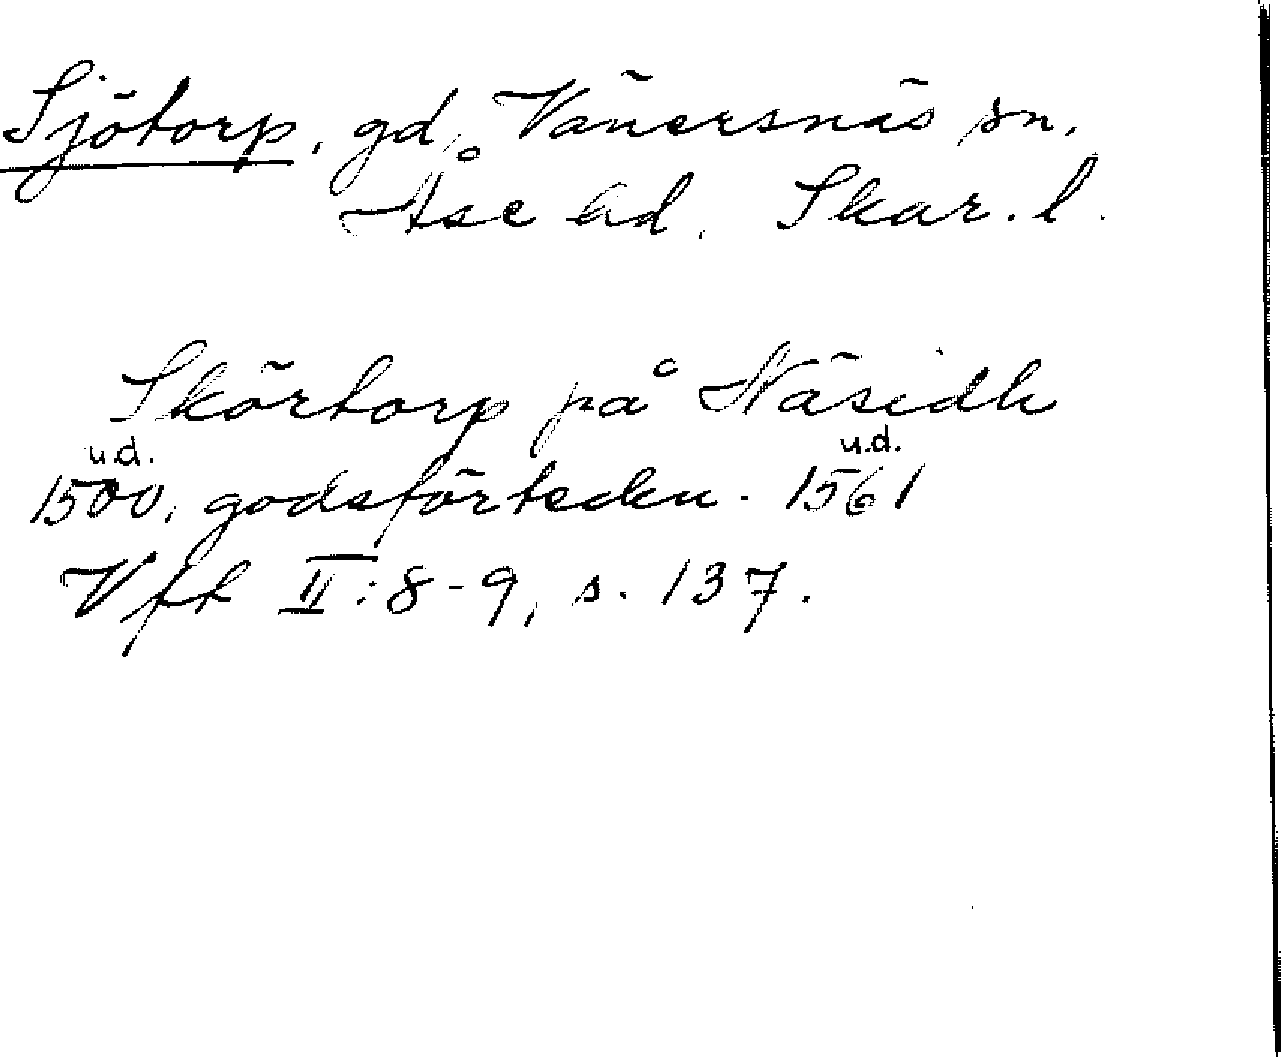 Sjötorp, gd, Vänersnäs sn,
Åse hd, Skar. l.
Skörtorp på Näsidh
u.d. u.d.
1500, godsförteckn. 1561
Vft II:8-9, s. 137.